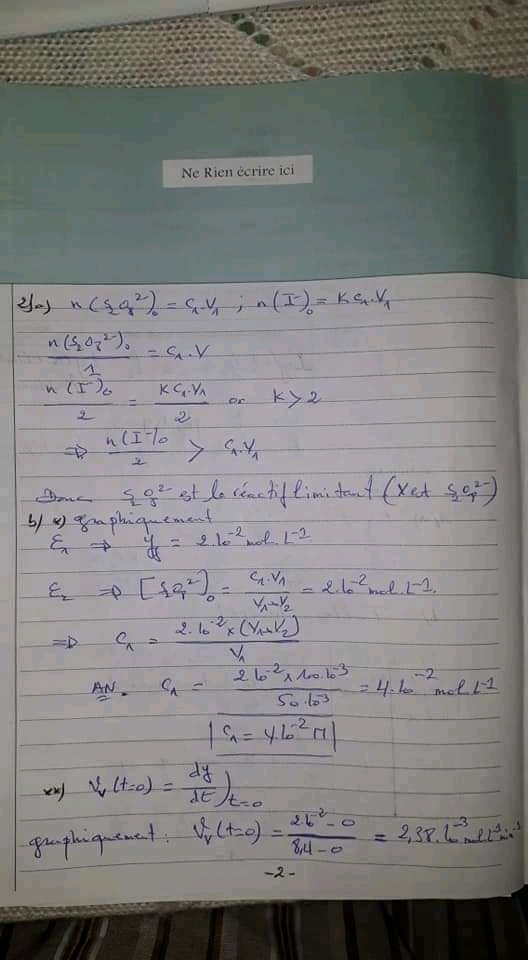 Ne Rien écrire ici
2/a) n(S₂O₈²⁻)₀ = C₁.V₁ ; n(I⁻)₀ = K C₁.V₁
n(S₂O₈²⁻)₀/1 = C₁.V
n(I⁻)₀/2 = K C₁.V₁/2 or K > 2
⇒ n(I⁻)₀/2 > C₁.V₁
Donc S₂O₈²⁻ est le réactif limitant (X est S₂O₈²⁻)
b/ *) graphiquement
ℰ₁ ⇒ yf = 2.10⁻² mol.L⁻¹
ℰ₂ ⇒ [S₂O₈²⁻]₀ = C₁.V₁/V₁+V₂ = 2.10⁻² mol.L⁻¹.
⇒ C₁ = 2.10⁻² × (V₁+V₂)/V₁
AN. C₁ = 2.10⁻² × 100.10⁻³/50.10⁻³ = 4.10⁻² mol.L⁻¹
| C₁ = 4.10⁻² M |
**) Vv(t=0) = dy/dt)t=0
graphiquement : Vv(t=0) = 2.10⁻² - 0/8,4 - 0 = 2,38.10⁻³ mol.L⁻¹.min⁻¹
-2-